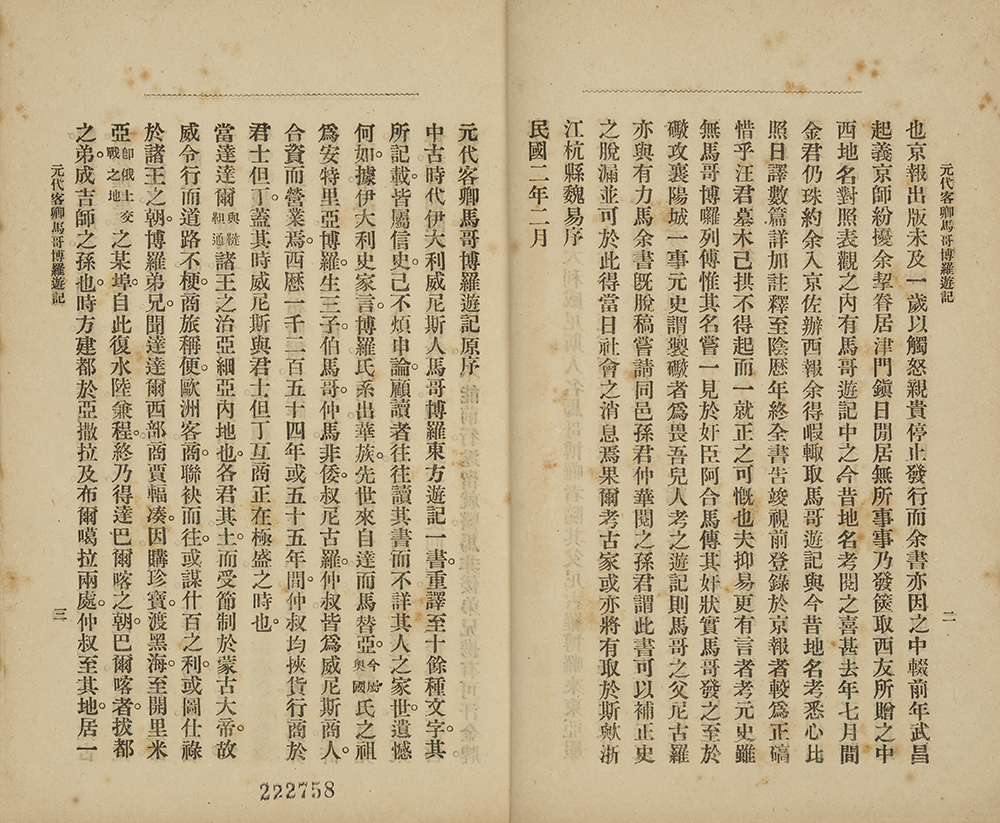 元代客卿馬哥博羅遊記
二
也京報出版未及一歲以觸怒親貴停止發行而余書亦因之中輟前年武昌
起義京師紛擾余挈眷居津門鎭日閒居無所事事乃發篋取西友所贈之中
西地名對照表觀之內有馬哥遊記中之今昔地名考閱之喜甚去年七月間
金君仍珠約余入京佐辦西報余得暇輒取馬哥遊記與今昔地名考悉心比
照日譯數篇詳加註釋至陰曆年終全書吿竣視前登錄於京報者較爲正碻
惜乎汪君墓木已拱不得起而一就正之可慨也夫抑易更有言者考元史雖
無馬哥博囉列傳惟其名嘗一見於奸臣阿合馬傳其奸狀實馬哥發之至於
礮攻襄陽城一事元史謂製礮者爲畏吾兒人考之遊記則馬哥之父尼古羅
亦與有力焉余書旣脫稿嘗請同邑孫君仲華閱之孫君謂此書可以補正史
之脫漏並可於此得當日社會之消息焉果爾考古家或亦將有取於斯歟浙
江杭縣魏易序
民國二年二月
元代客卿馬哥博羅遊記原序
中古時代伊大利威尼斯人馬哥博羅東方遊記一書。重譯至十餘種文字。其
所記載。皆屬信史。已不煩申論。顧讀者往往讀其書而不詳其人之家世。遺憾
何如。據伊大利史家言。博羅氏系出華族。先世來自達而馬替亞。今屬奧國氏之祖
爲安特里亞博羅。生三子。伯馬哥。仲馬非倭。叔尼古羅。仲叔皆爲威尼斯商人。
合資而營業焉。西曆一千二百五十四年或五十五年間。仲叔均挾貨行商於
君士但丁。蓋其時威尼斯與君士但丁互商正在極盛之時也。
當達達爾與韃靼通諸王之治亞細亞內地也。各君其土。而受節制於蒙古大帝。故
威令行而道路不梗。商旅稱便。歐洲客商。聯袂而往。或謀什百之利。或圖仕祿
於諸王之朝。博羅弟兄。聞達達爾西部商賈輻湊。因購珍寶。渡黑海。至開里米
亞卽俄土交戰之地之某埠。自此復水陸兼程。終乃得達巴爾喀之朝。巴爾喀者。拔都
之弟。成吉師之孫也。時方建都於亞撒拉及布爾噶拉兩處。仲叔至其地。居一
元代客卿馬哥博羅遊記
三
222758